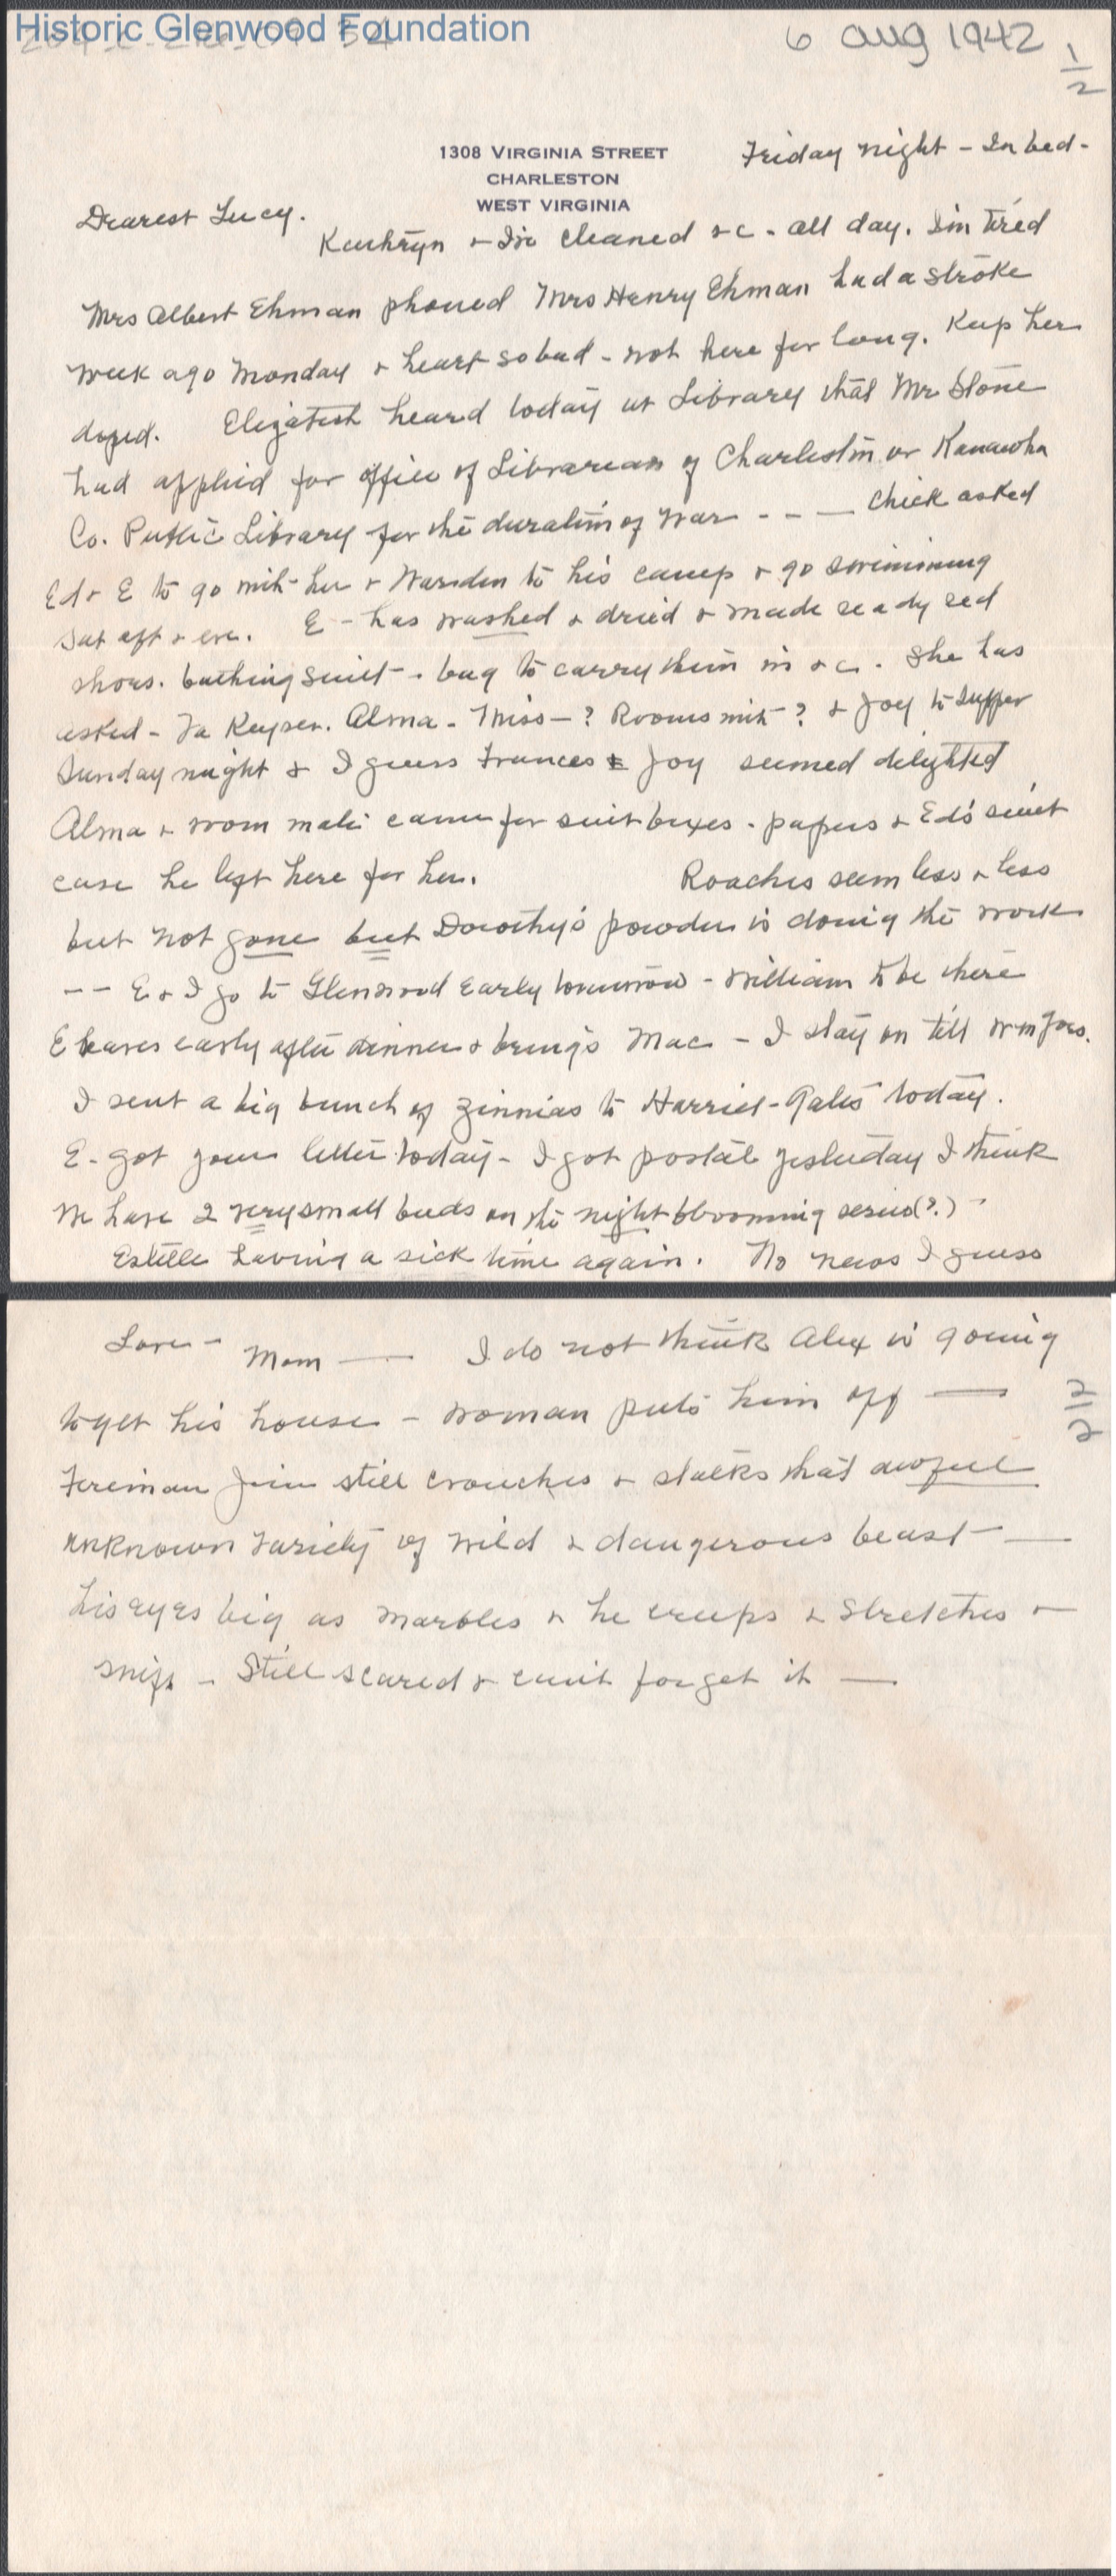 Historic Glenwood Foundation
6 Aug 1942
1/2
1308 VIRGINIA STREET
CHARLESTON
WEST VIRGINIA
Friday night - In bed -
Dearest Lucy.
Kathryn + I've cleaned &c - all day. I'm tired
Mrs Albert Ehman phoned Mrs Henry Ehman had a stroke
week ago Monday + heart so bad - not here for long. Keep her
doped. Elizabeth heard today at Library that Mr Stone
had applied for office of Librarian of Charleston or Kanawha
Co. Public Library for the duration of war - - — Chick asked
Ed + E to go with her + Warden to his camp + go swimming
Sat aft + eve. E - has washed + dried + made ready red
shoes. bathing suit - . bag to carry them in &c. She has
asked - Keyser. Alma - Miss - ? Rooms with ? + Joy to supper
Sunday night + I guess Frances & Joy seemed delighted
Alma + room mate came for suit boxes - papers + Ed's suit
case he left here for her. Roaches seem less + less
but not gone but Dorothy's powder is doing the work
-- E + I go to Glenwood early tomorrow - William to be there
E leaves early after dinner + brings Mac - I stay on till Wm goes.
I sent a big bunch of zinnias to Harriet - Gates today.
E - got your letter today - I got postal yesterday I think
We have 2 very small buds on the night blooming serius (?) -
Estelle having a sick time again. No news I guess
Love - Mom — I do not think Alex is going
to get his house - woman puts him off —
Fireman Jim still crouches + stalks that awful
unknown variety of wild + dangerous beast —
his eyes big as marbles + he creeps + stretches +
sniffs - Still scared + can't forget it —
2/2